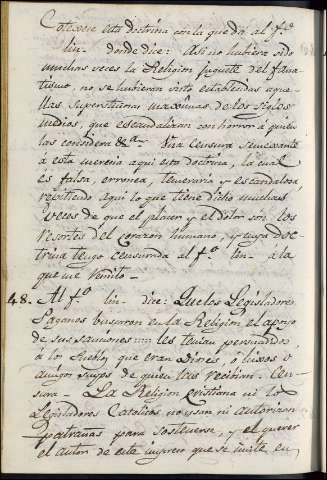 Cotexese esta doctrina con la que da al f.º
lin. donde dice: Asi no hubiera sido
muchas veces la Religion juguete del fana-
tismo, no se hubieran visto establecidas aque-
llas supersticiosas maximas de los siglos
medios, que escandalizan con horror á quien
las considera &.ª Una censura semexante
á esta merecia aqui esta doctrina, la cual
es falsa, erronea, temeraria y escandalosa,
repitiendo aqui lo que tiene dicho muchas
veces de que el placer y el dolor son los
resortes del corazon humano, y cuya doc-
trina tengo censurada al f.º lin. á la
que me remito.
48. Al f.º lin. dice: Que los Legisladores
Paganos buscaron en la Religion el apoyo
de sus sanciones les tenian persuadidos
á los Pueblos que eran Dioses, ó hixos o
amigos suyos de quien las recibian. Cen-
sura. La Religion cristiana ni los
Legisladores Catolicos no usan ni autorizan
patrañas para sostenerse, y el querer
el autor de este impreso que se imite en